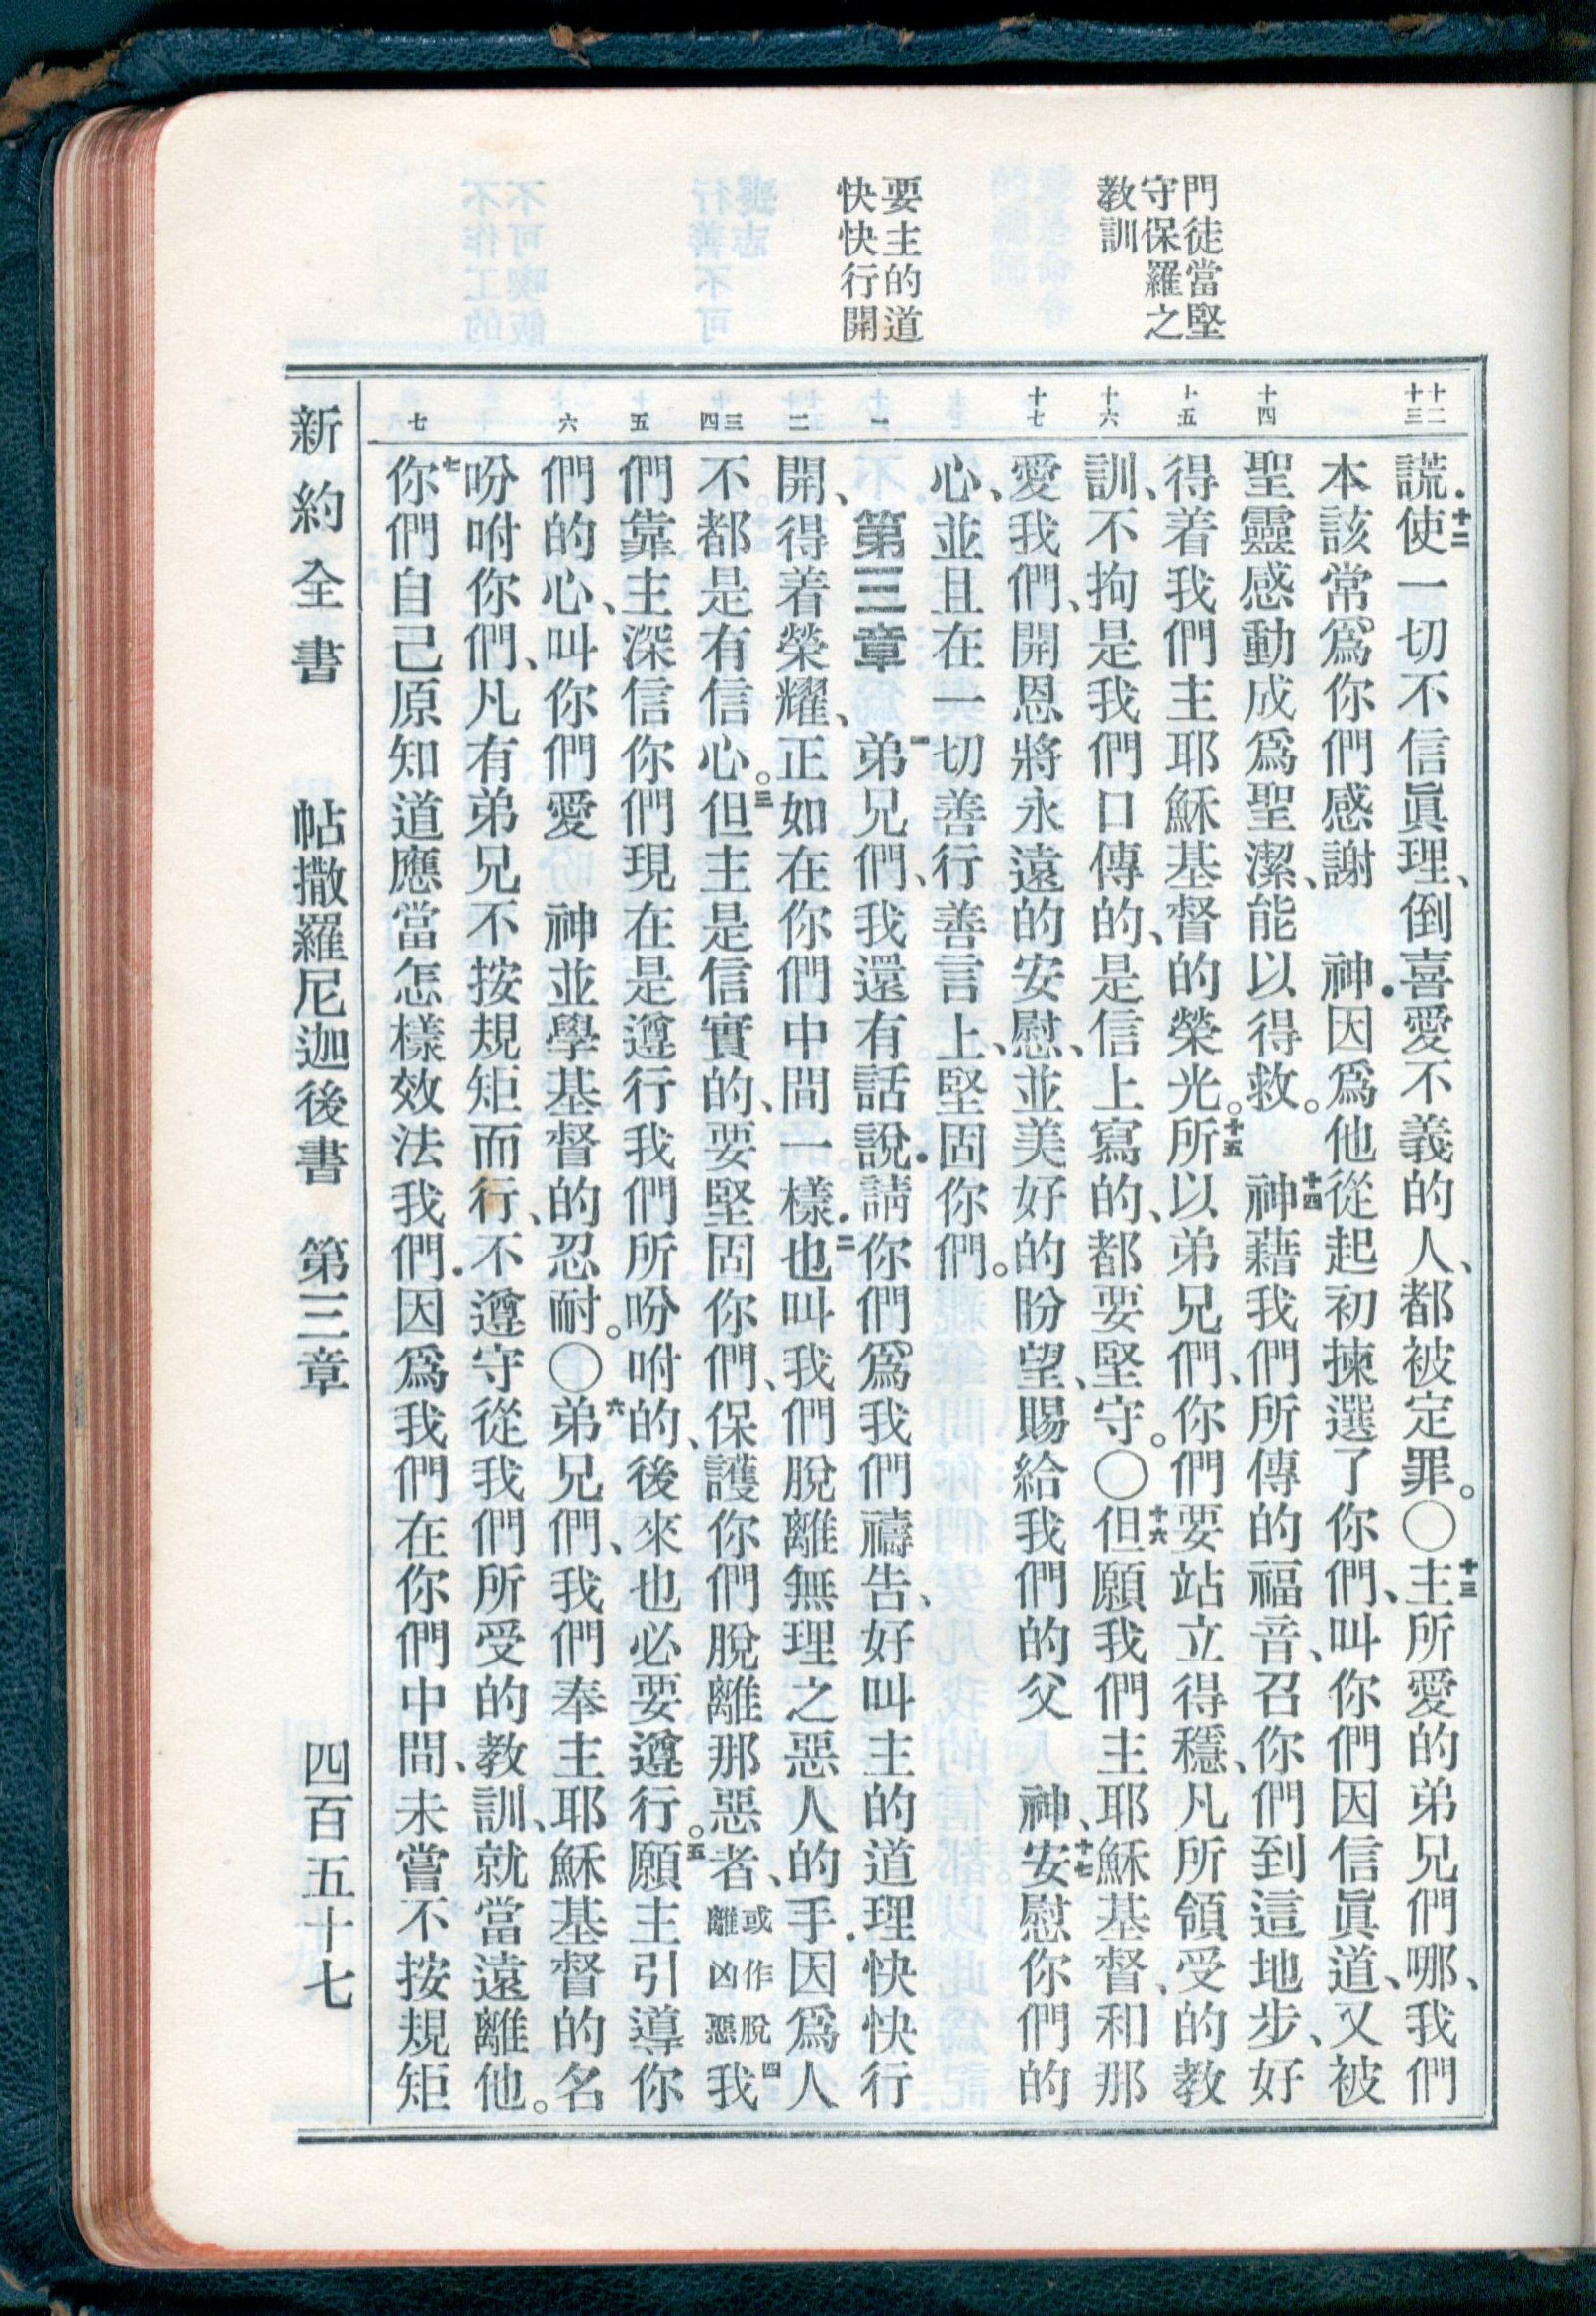 門徒當堅
守保羅之
教訓
要主的道
快快行開
十二
十三
十四
十五
十六
十七
一
二
三
四
五
六
七
謊．十二使一切不信眞理、倒喜愛不義的人、都被定罪。〇十三主所愛的弟兄們哪、我們
本該常爲你們感謝　神．因爲他從起初揀選了你們、叫你們因信眞道、又被
聖靈感動成爲聖潔、能以得救。十四神藉我們所傳的福音、召你們到這地步、好
得着我們主耶穌基督的榮光。十五所以弟兄們、你們要站立得穩、凡所領受的教
訓、不拘是我們口傳的、是信上寫的、都要堅守。〇十六但願我們主耶穌基督、和那
愛我們、開恩將永遠的安慰、並美好的盼望、賜給我們的父　神、十七安慰你們的
心、並且在一切善行善言上、堅固你們。
第三章　一弟兄們、我還有話說．請你們爲我們禱告、好叫主的道理快快行
開、得着榮耀、正如在你們中間一樣．二也叫我們脫離無理之惡人的手．因爲人
不都是有信心。三但主是信實的、要堅固你們、保護你們脫離那惡者、或作脫離凶惡四我
們靠主深信你們現在是遵行我們所吩咐的、後來也必要遵行。五願主引導你
們的心、叫你們愛　神並學基督的忍耐。〇六弟兄們、我們奉主耶穌基督的名
吩咐你們、凡有弟兄不按規矩而行、不遵守從我們所受的教訓、就當遠離他。
七你們自己原知道應當怎樣效法我們．因爲我們在你們中間、未嘗不按規矩
新約全書　帖撒羅尼迦後書　第三章　四百五十七